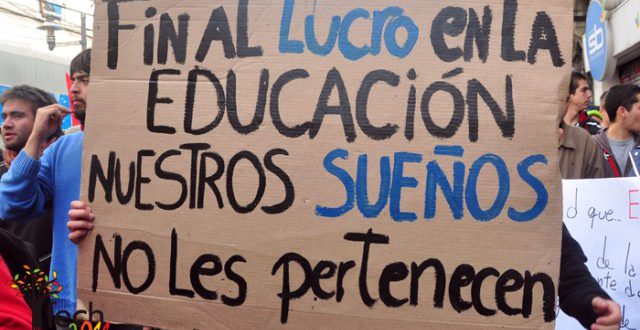 Fin al Lucro en la
Educación
Nuestros Sueños
No Les pertenecen
sb
d que...
de la
fech